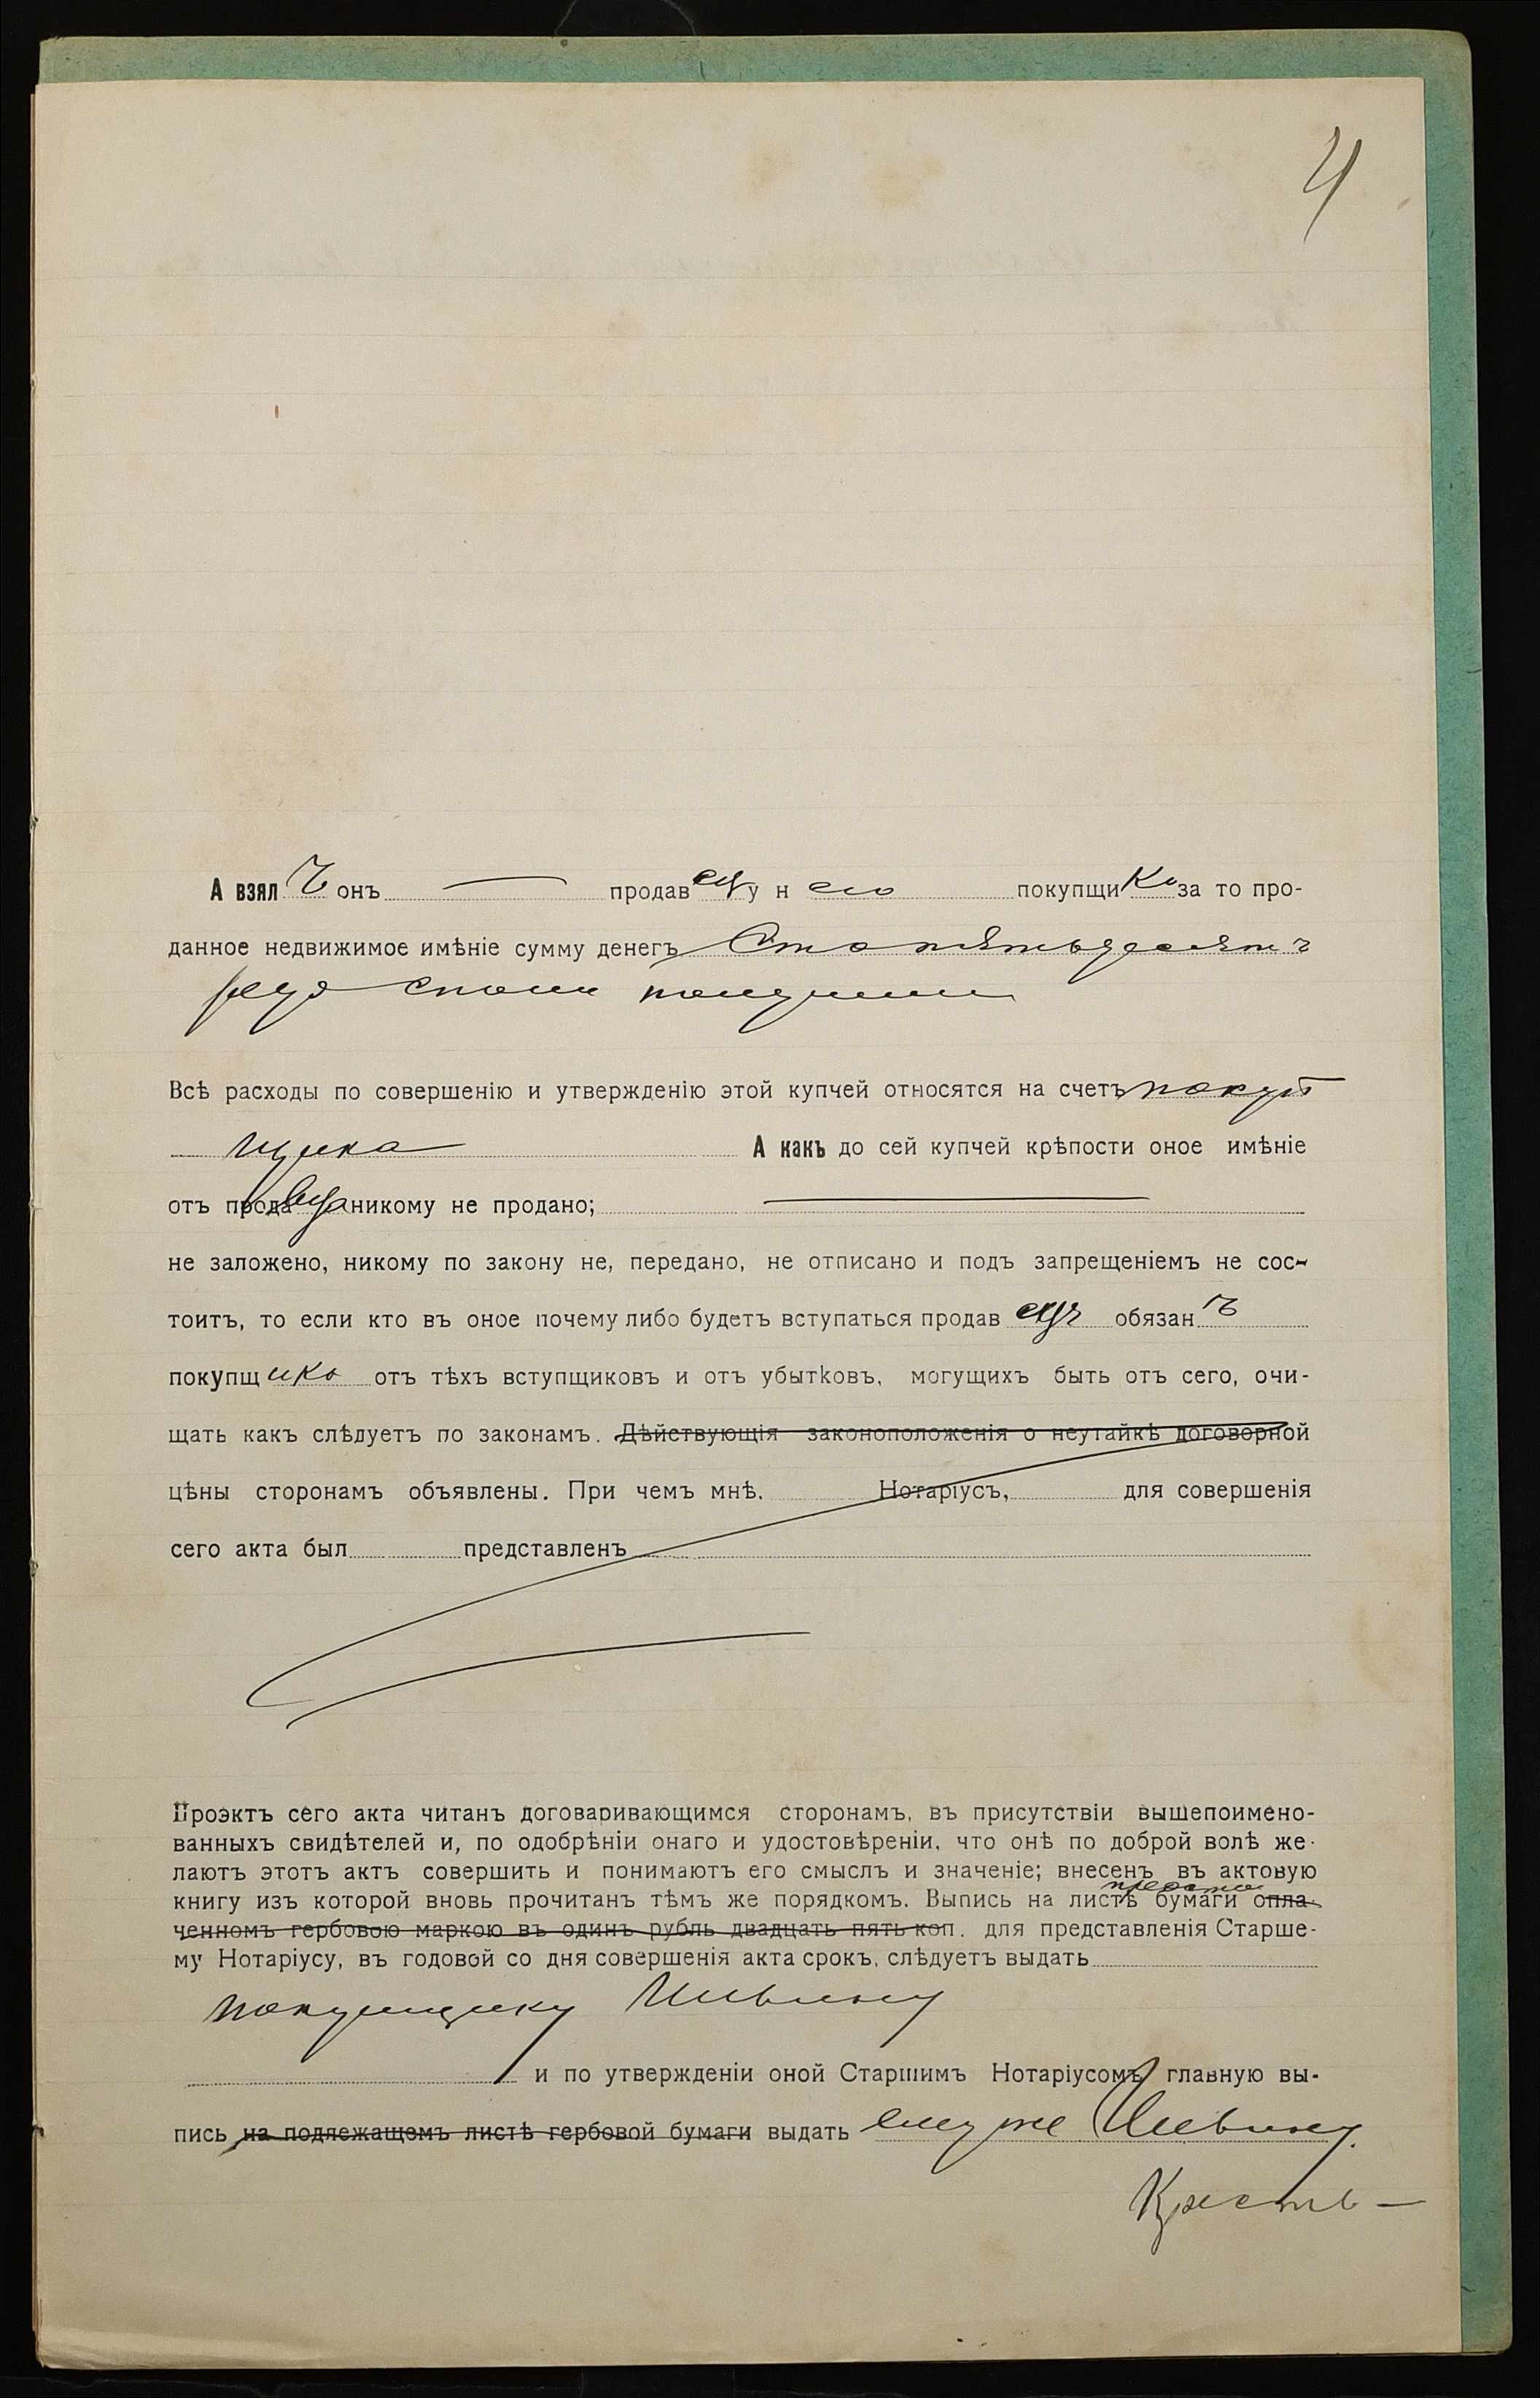 4
А взялъ онъ продавецъ у него покупщика за то про-
данное недвижимое имѣніе сумму денегъ Сто пятьдесятъ
руб сполна
Всѣ расходы по совершенію и утвержденію этой купчей относятся на счетъ покуп
щика А какъ до сей купчей крѣпости оное имѣніе
отъ продавца никому не продано;
не заложено, никому по закону не, передано, не отписано и подъ запрещеніемъ не сос-
тоитъ, то если кто въ оное почему либо будетъ вступаться продавецъ обязанъ
покупщика отъ тѣхъ вступщиковъ и отъ убытковъ, могущихъ быть отъ сего, очи-
щать какъ слѣдуетъ по законамъ. Дѣйствующія законоположенія о неутайкѣ договорной
цѣны сторонамъ объявлены. При чемъ мнѣ, Нотаріусъ, для совершенія
сего акта был представленъ
Проэктъ сего акта читанъ договаривающимся сторонамъ, въ присутствіи вышепоимено-
ванныхъ свидѣтелей и, по одобрѣніи онаго и удостовѣреніи, что онѣ по доброй волѣ же-
лаютъ этотъ актъ совершить и понимаютъ его смыслъ и значеніе; внесенъ въ актовую
простой
книгу изъ которой вновь прочитанъ тѣмъ же порядкомъ. Выпись на листѣ бумаги опла-
ченномъ гербовою маркою въ одинъ рубль двадцать пять коп. для представленія Старше-
му Нотаріусу, въ годовой со дня совершенія акта срокъ, слѣдуетъ выдать
покупщику
и по утвержденіи оной Старшимъ Нотаріусомъ главную вы-
пись на подлежащемъ листѣ гербовой бумаги выдать ему же
Кресть-